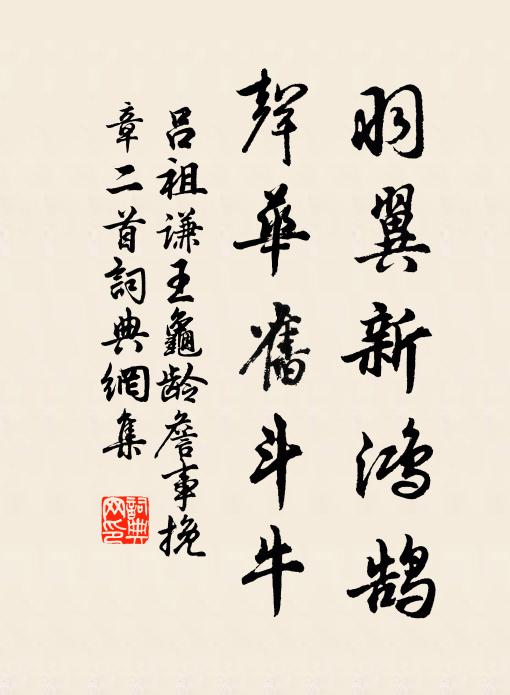 羽翼新鸿鹄
聲華舊斗牛
吕祖谦王龜龄詹事挽
章二首詞典網集
詞典
网印